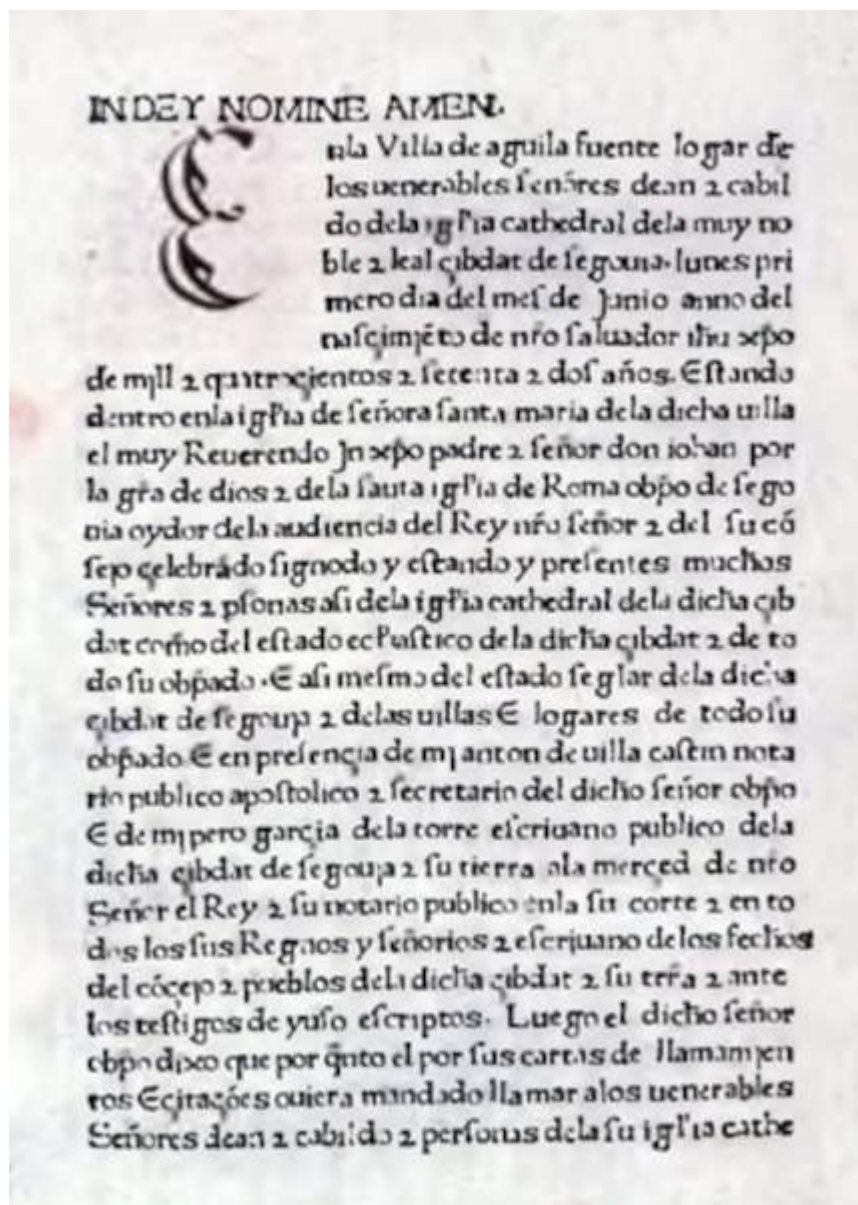 IN DEY NOMINE AMEN.
E nla Villa de aguila fuente logar de
los uenerables señores dean ⁊ cabil
do dela igłia cathedral dela muy no
ble ⁊ leal çibdat de segouia. lunes pri
mero dia del mes de Junio anno del
nasçimjẽto de nr̃o saluador ihũ xp̃o
de mjll ⁊ quatroçientos ⁊ setenta ⁊ dos años. Estando
dentro enla igłia de señora santa maria dela dicha uilla
el muy Reuerendo Jn xp̃o padre ⁊ señor don iohan por
la gr̃a de dios ⁊ dela santa igłia de Roma obp̃o de sego
uia oydor dela audiencia del Rey nr̃o señor ⁊ del su cõ
sejo çelebrãdo signodo y estando y presentes muchos
Señores ⁊ p̃sonas asi dela igłia cathedral dela dicha çib
dat com̃o del estado ecłastico dela dicha çibdat ⁊ de to
do su obp̃ado. E asi mesmo del estado seglar dela dicha
çibdat de segouja ⁊ delas uillas E logares de todo su
obp̃ado E en presençia de mj anton de uilla castin nota
rio publico apostolico ⁊ secretario del dicho señor obp̃o
E de mj pero garçia dela torre escriuano publico dela
dicha çibdat de segouja ⁊ su tierra ala merçed de nr̃o
Señor el Rey ⁊ su notario publico enla su corte ⁊ en to
dos los sus Regnos y señorios ⁊ escrjuano delos fechos
del cõçejo ⁊ pueblos dela dicha çibdat ⁊ su trr̃a ⁊ ante
los testigos de yuso escriptos. Luego el dicho señor
obp̃o dixo que por q̃nto el por sus cartas de llamamjen
tos E çitações ouiera mandado llamar alos uenerables
Señores dean ⁊ cabildo ⁊ personas dela su igłia cathe